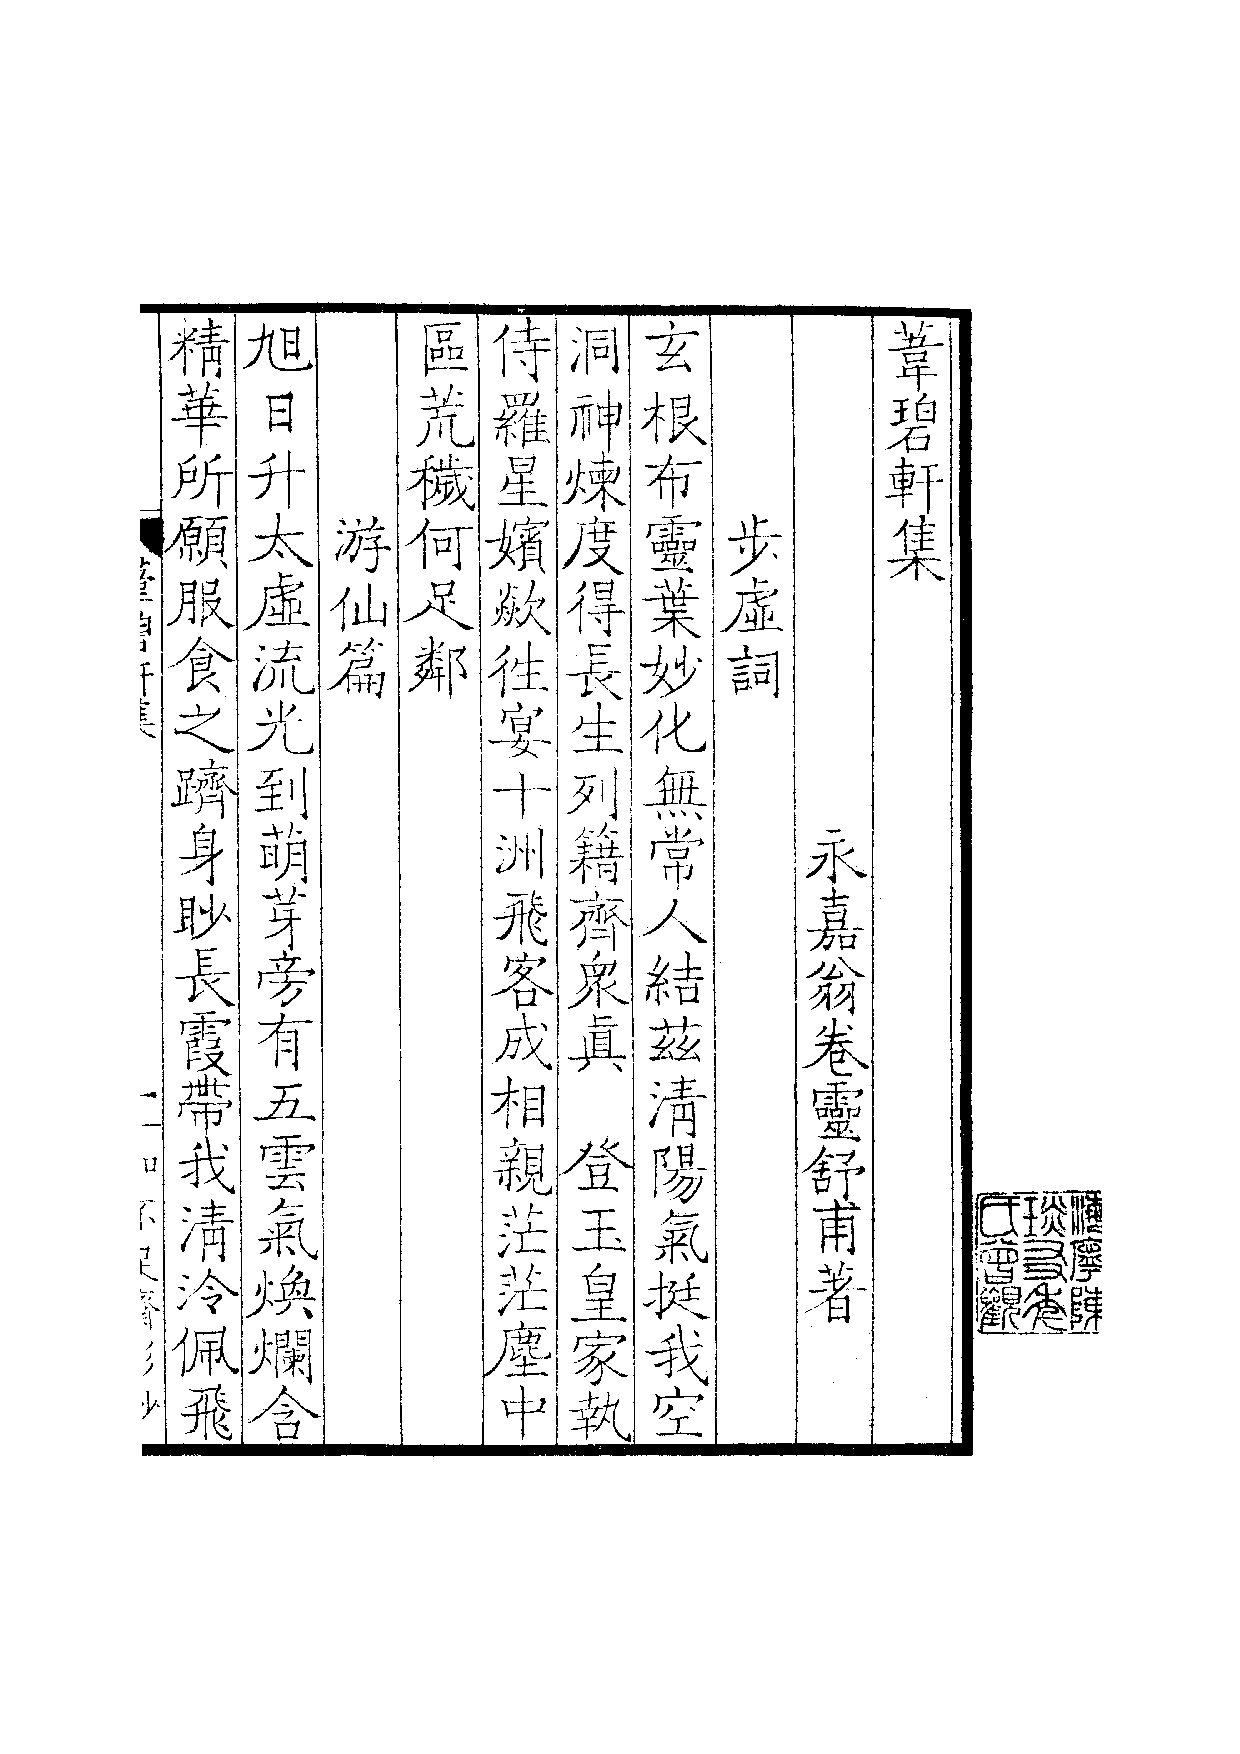 葦碧軒集
永嘉翁卷靈舒甫著
步虛詞
玄根布靈葉妙化無常人結茲淸陽氣挺我空
洞神煉度得長生列籍齊衆眞　登玉皇家執
侍羅星嬪歘徃宴十洲飛客成相親茫茫塵中
區荒穢何足鄰
游仙篇
旭日升太虛流光到萌芽旁有五雲氣煥爛含
精華所願服食之躋身眇長霞帶我淸泠佩飛
葦碧軒集
一
知不足齋影抄
海寧陳
琰友年
氏曾觀